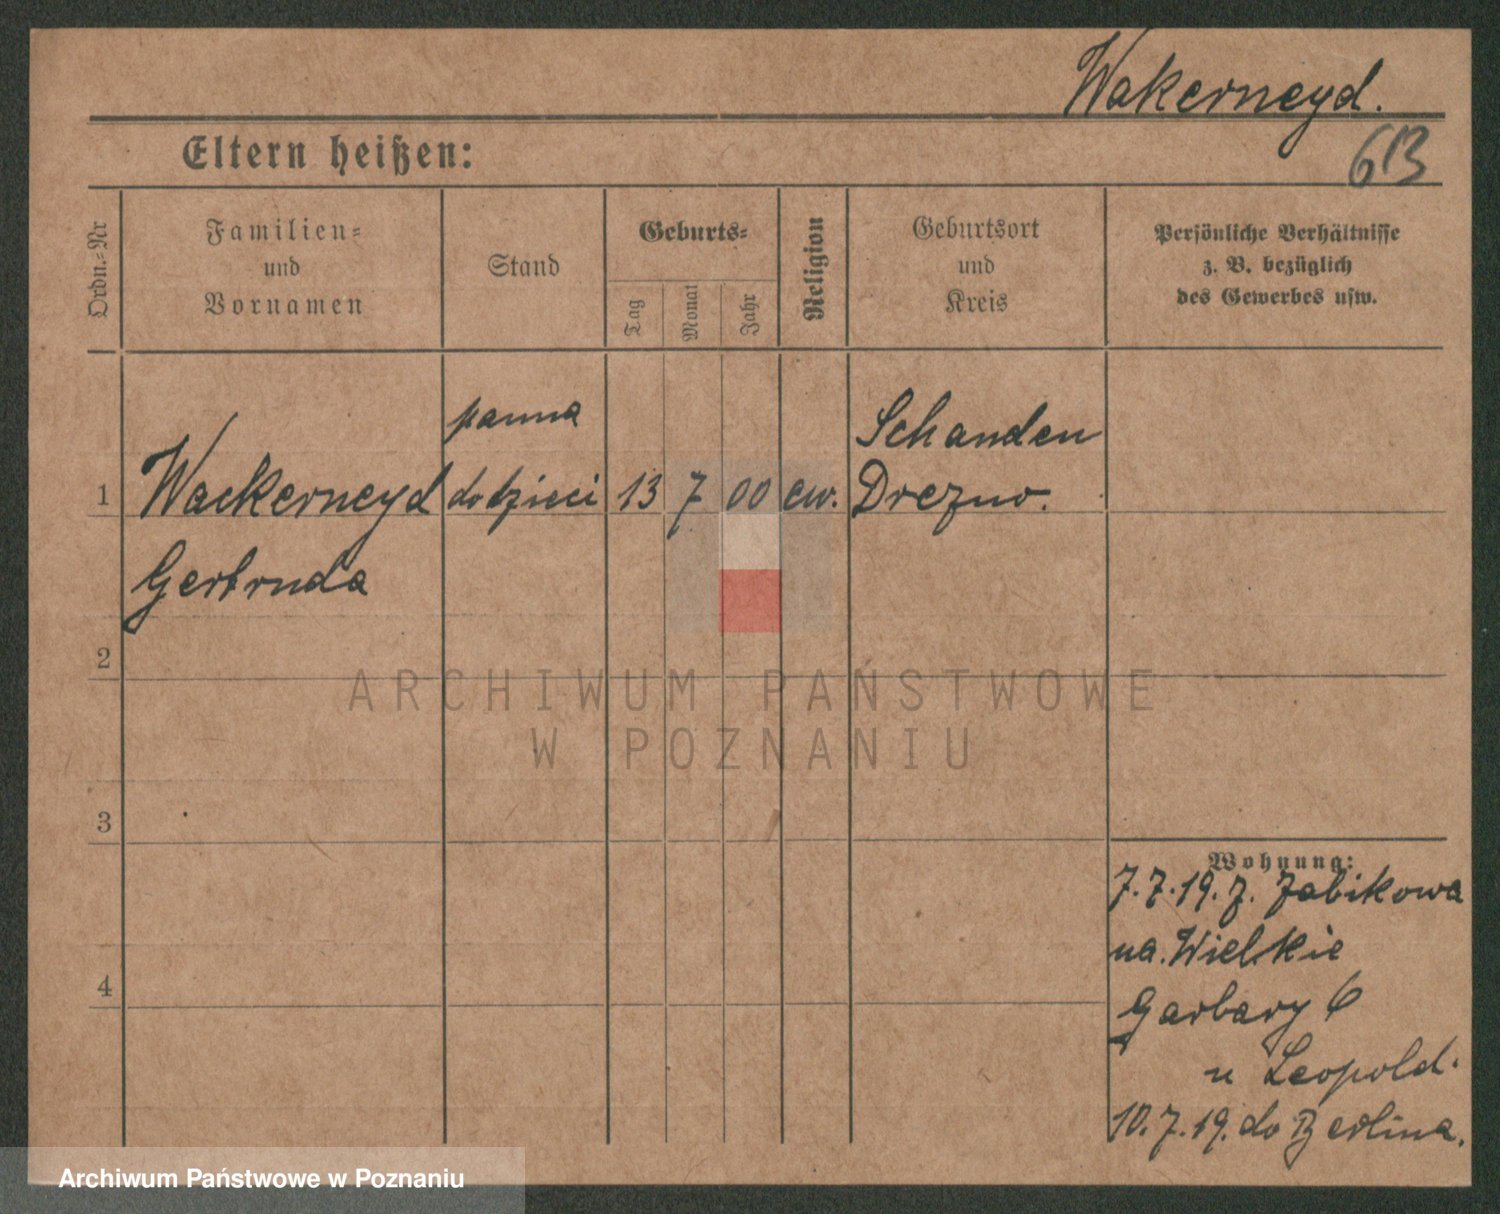 Wakerneyd.
613
Eltern heißen:
Ordn.-Nr
Familien-
und
Vornamen
Stand
Geburts-
Tag
Monat
Jahr
Religion
Geburtsort
und
Kreis
Persönliche Verhältnisse
z. B. bezüglich
des Gewerbes usw.
panna
Schanden
1 Wackerneyd do dzieci 13 7 00 ew. Drezno.
Gertruda
2
ARCHIWUM PAŃSTWOWE
W POZNANIU
3
Wohnung:
7.7.19. z. Żabikowa
na. Wielkie
4
Garbary 6
u Leopold.
10.7.19. do Berlina.
Archiwum Państwowe w Poznaniu